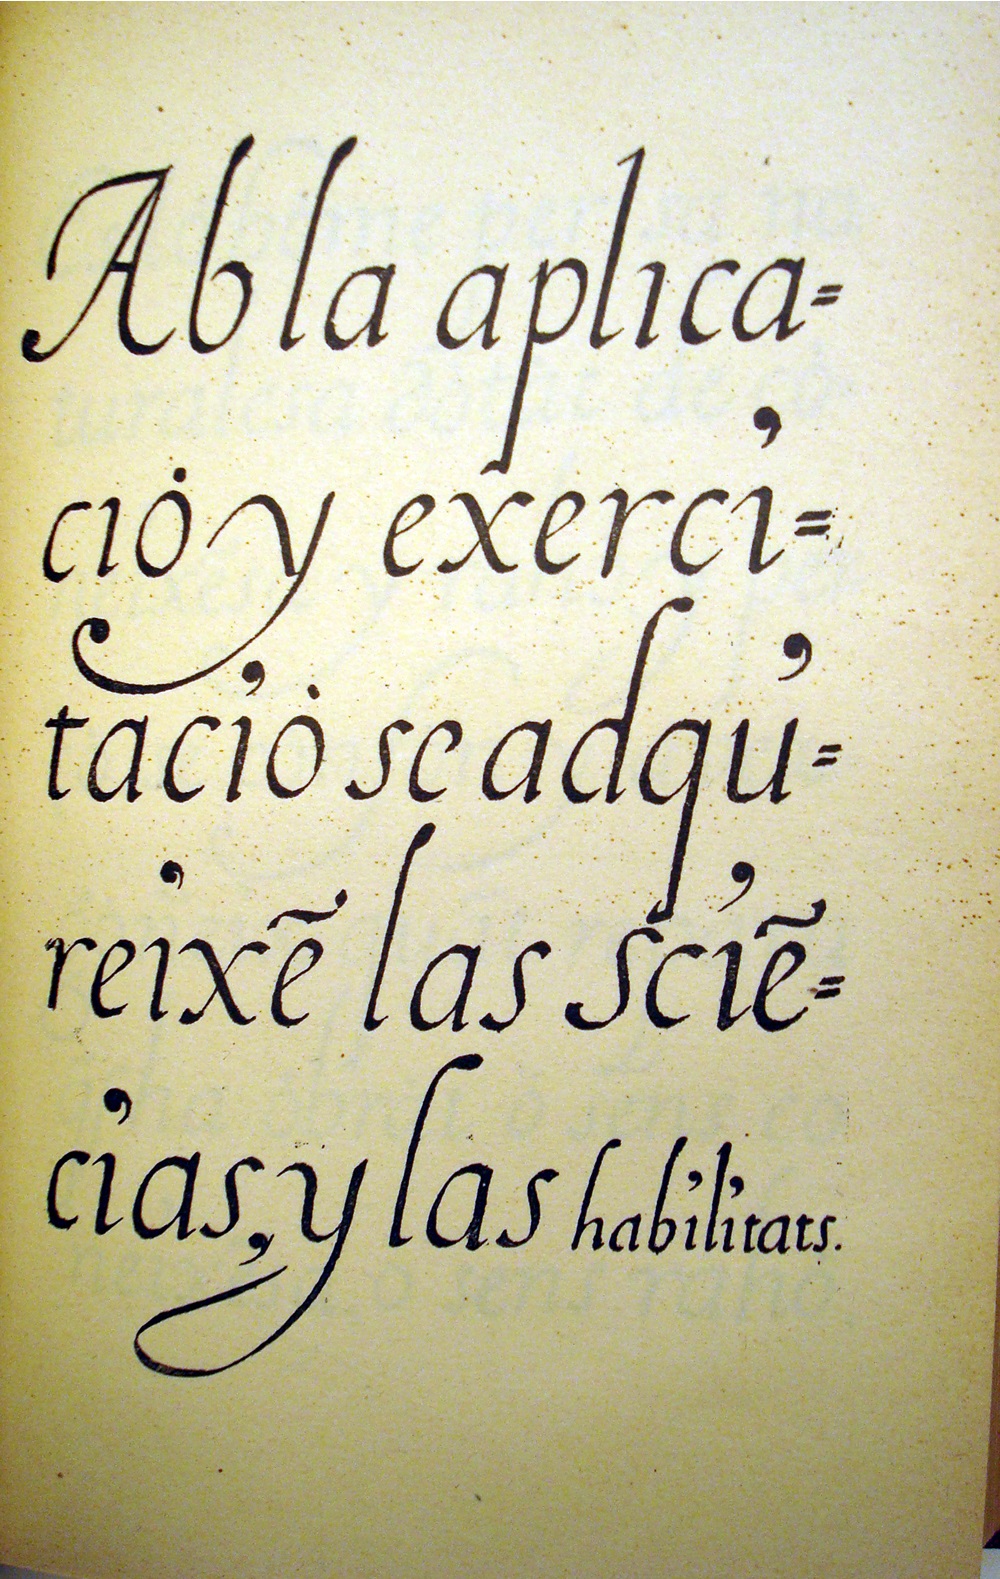 Ab la aplica=
ció y exerci=
tació se adqu=
reixẽ las sciẽ=
cias, y las habilitats.